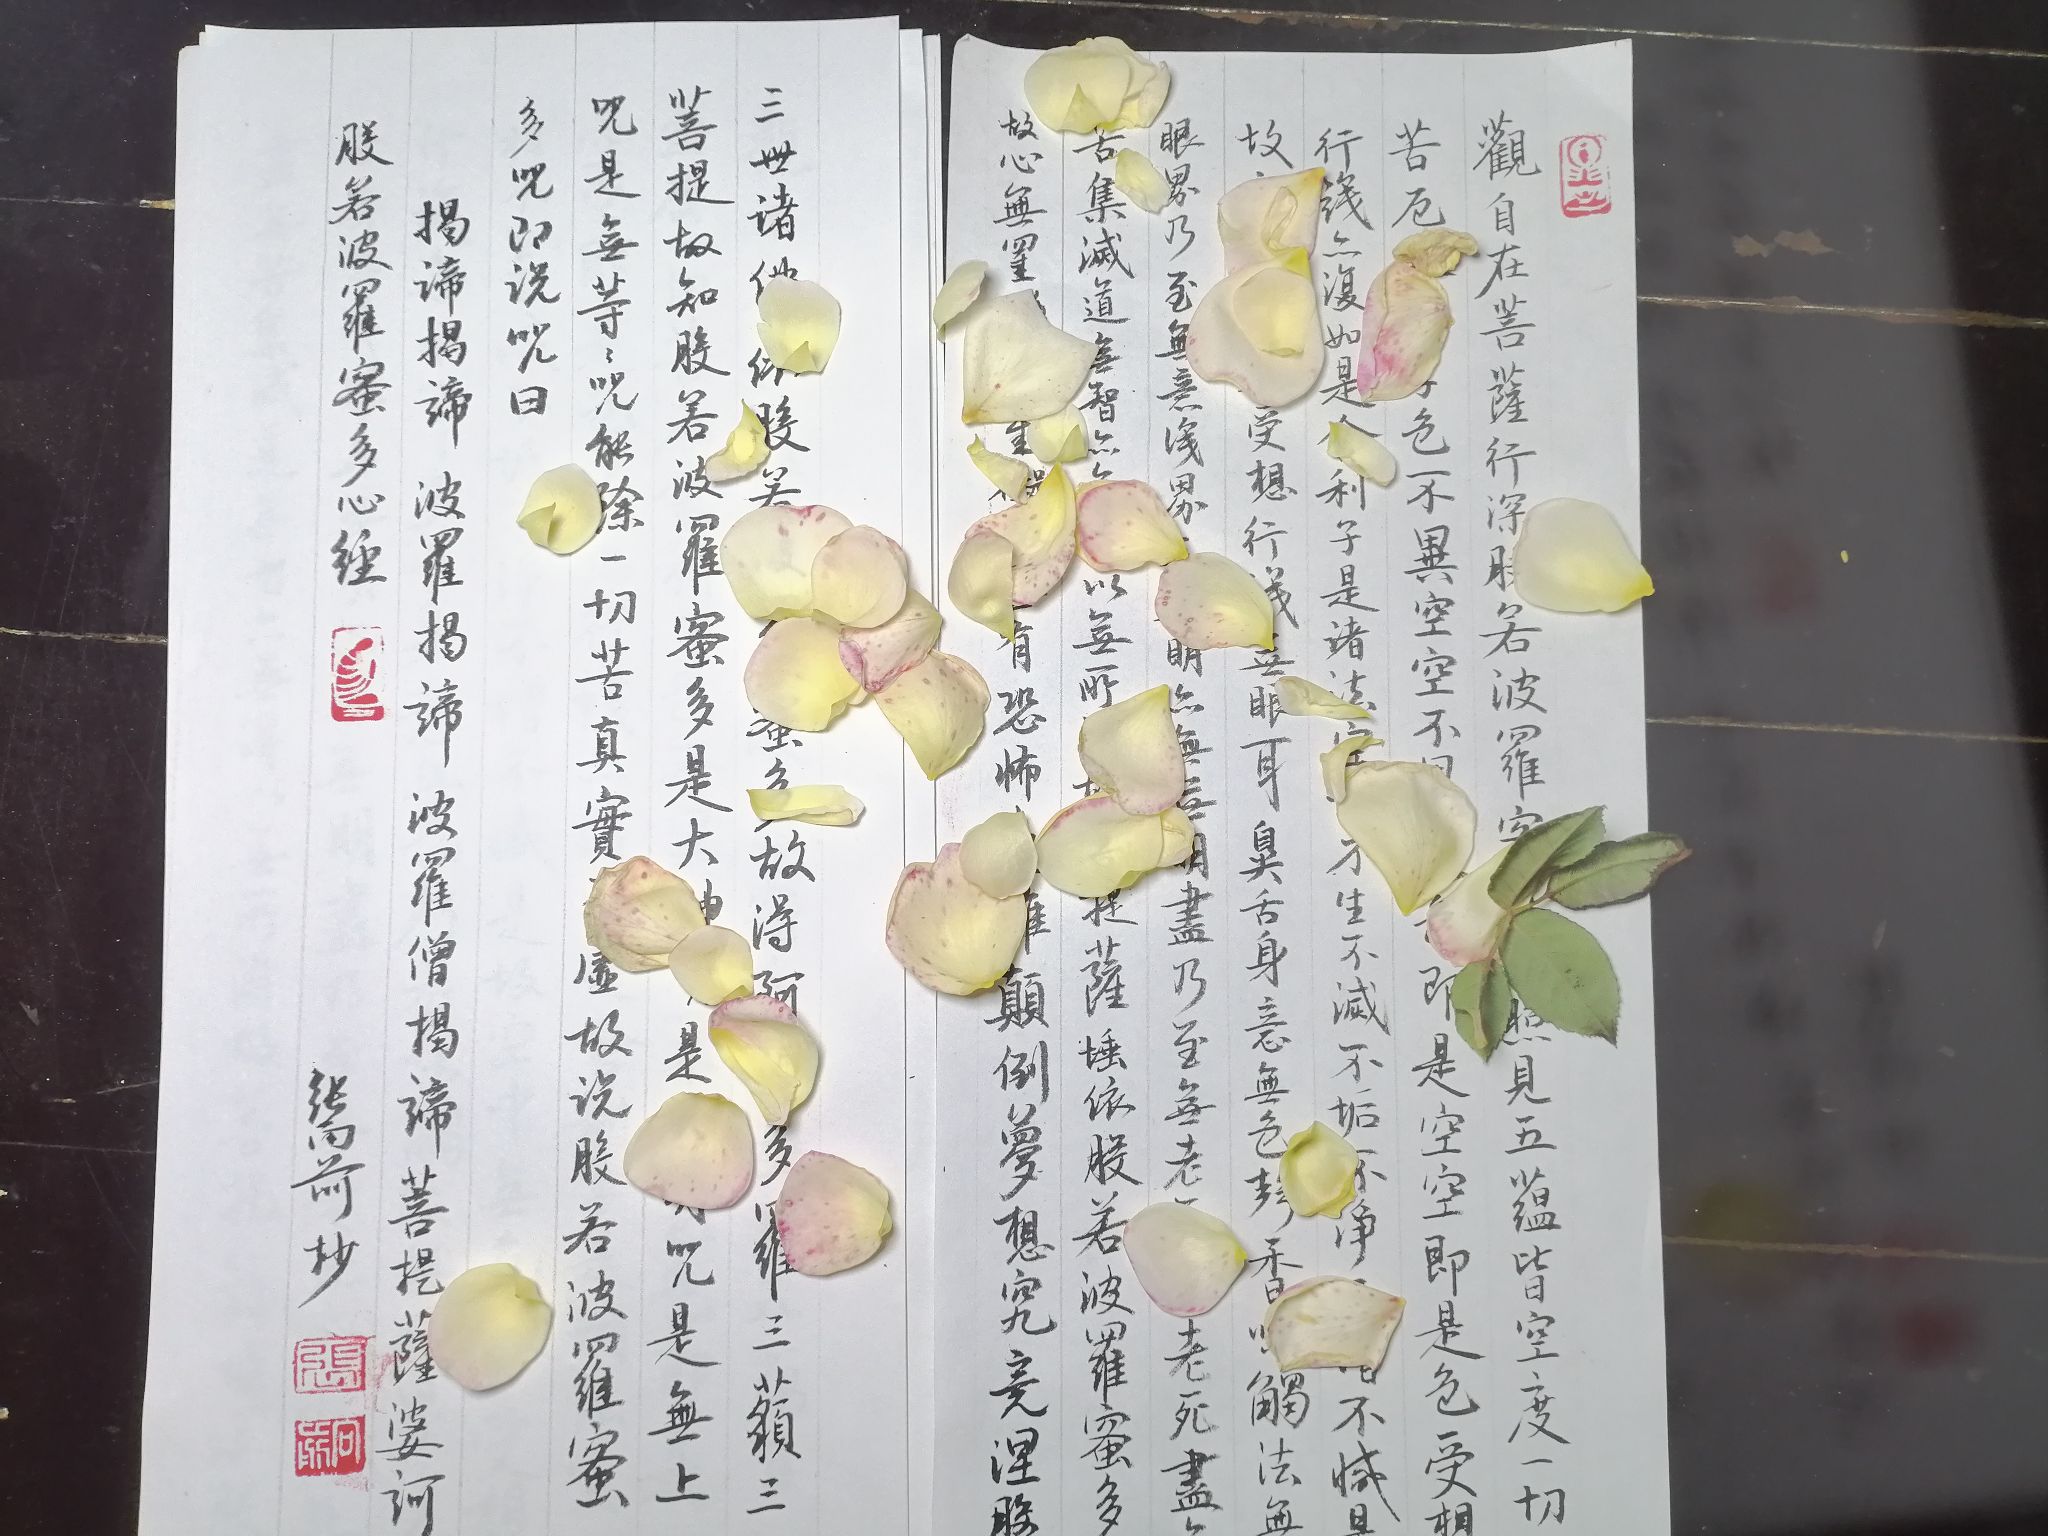 觀自在菩薩行深般若波羅 照見五蘊皆空度一切
苦厄 色不異空空不 即是空空即是色受想
行識亦復如是 利子是諸法空 不生不滅不垢不淨 不減是
故 受想行識無眼耳鼻舌身意無色聲香 觸法無
眼界乃至無意識界 明亦無無明盡乃至無老 老死盡
苦集滅道無智亦 以無所 提薩埵依般若波羅蜜多
故心無罣 有恐怖 離顛倒夢想究竟涅般
三世诸 依般若 蜜多故得阿 多羅三藐三
菩提故知般若波羅蜜多是大神 是 明咒是無上
咒是無等〻咒能除一切苦真實 虛故说般若波羅蜜
多咒即说咒曰
揭諦揭諦 波羅揭諦 波羅僧揭諦 菩提薩婆訶
般若波羅蜜多心經
抄